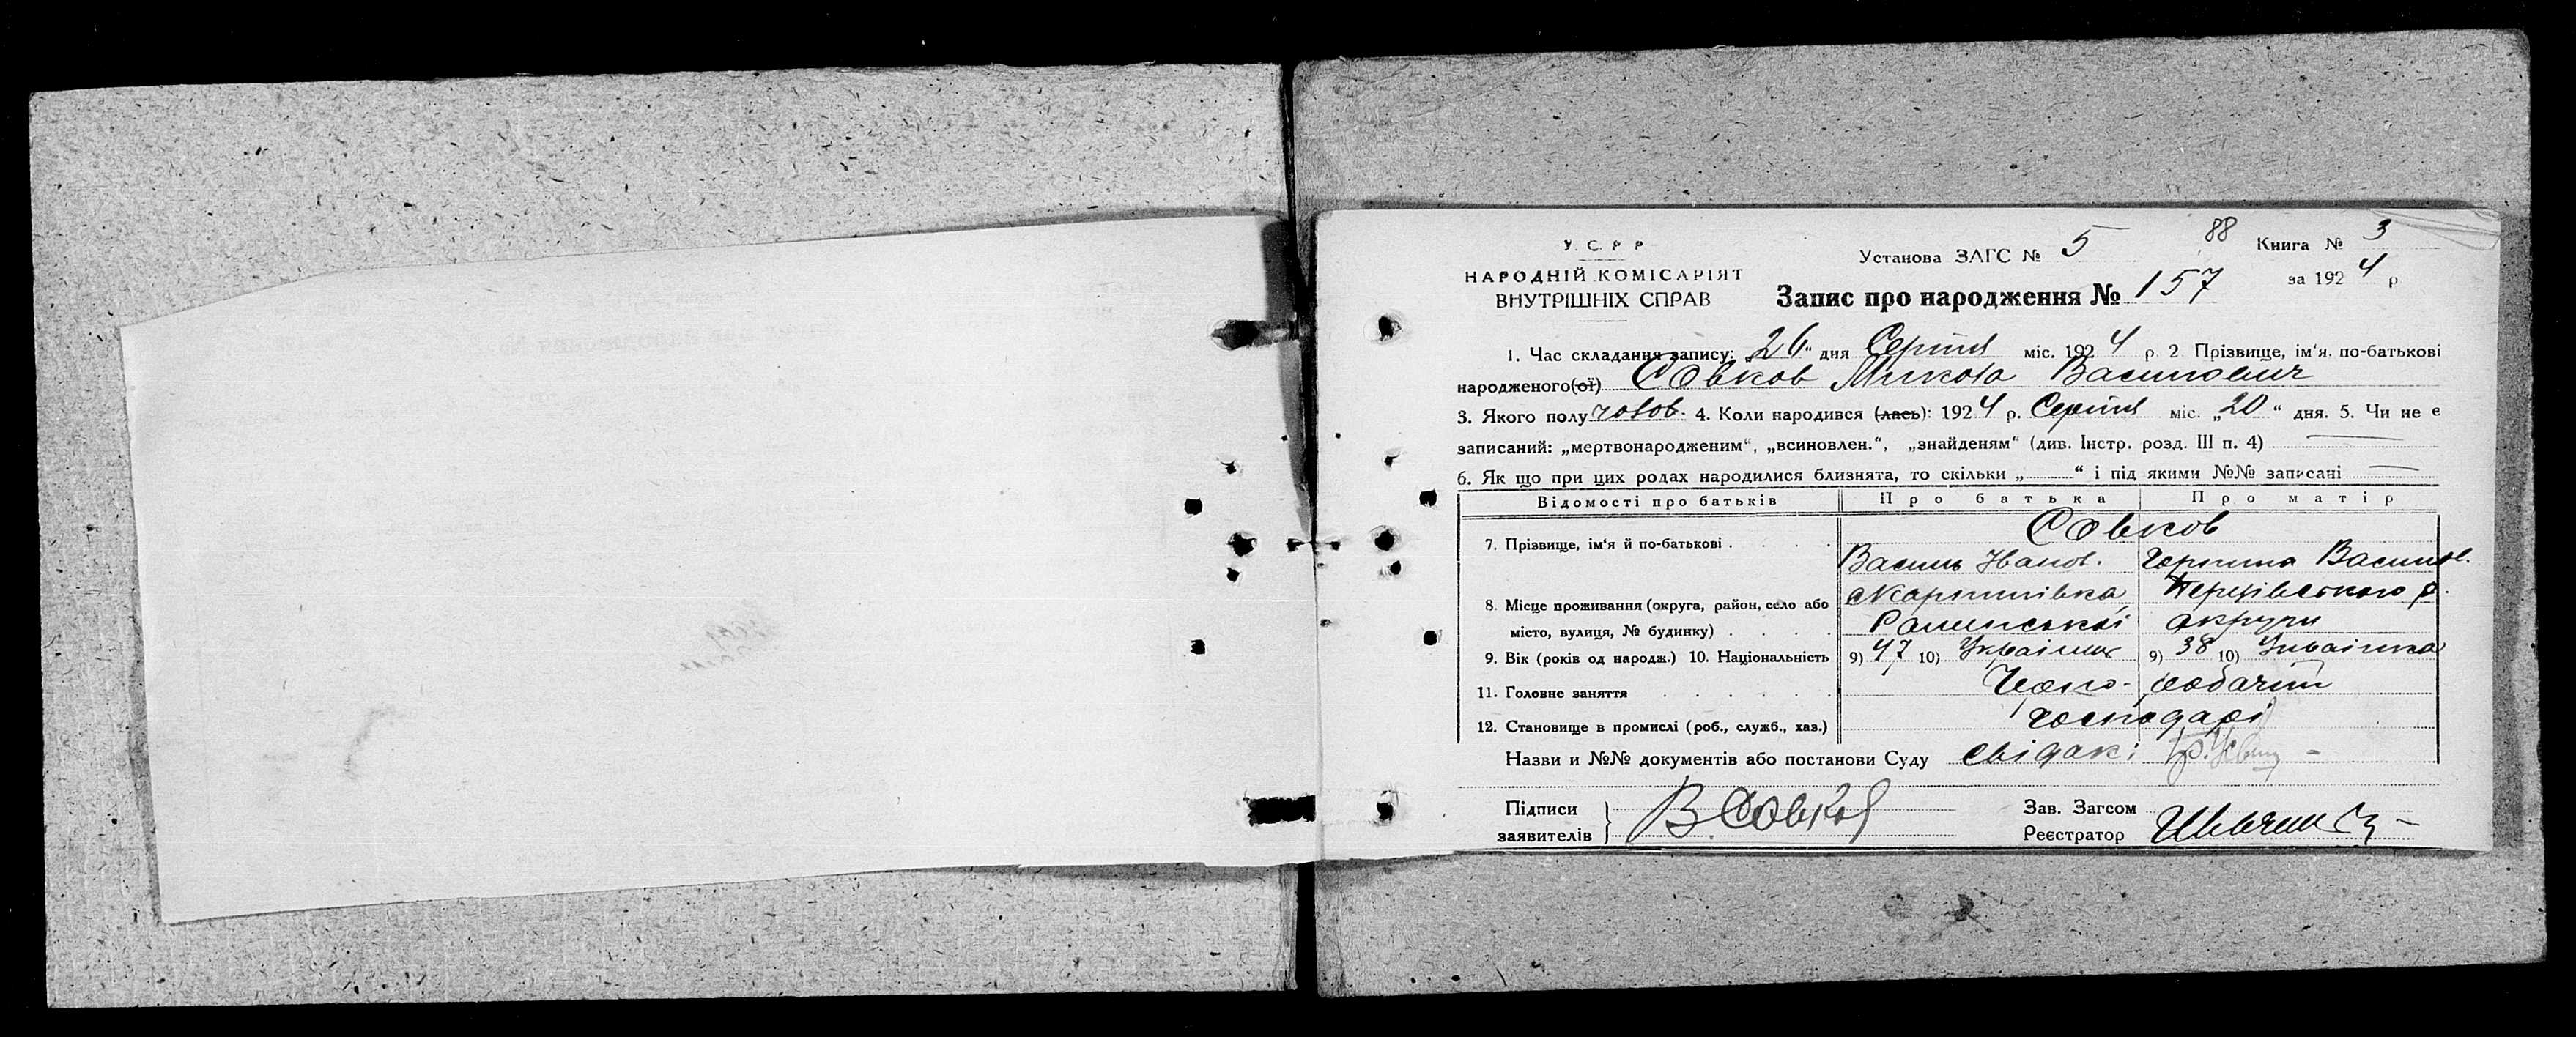 88
У. С. Р. Р.
НАРОДНІЙ КОМІСАРІЯТ
ВНУТРІШНІХ СПРАВ
Установа ЗАГС № 5
Книга № 3
за 1924 р
Запис про народження № 157
1. Час складання запису: „26“ дня Серпня міс. 1924 р. 2 Прізвище, ім‘я. по-батькові
народженого(ої) Совков Микола Васильович
3. Якого полу чолов. 4. Коли народився (лась): 1924 р. Серпня міс. „20“ дня. 5. Чи не є
записаний: „мертвонародженим“, „всиновлен.“, „знайденям“ (див. Інстр. розд. III п. 4)
6. Як що при цих родах народилися близнята, то скільки „ “ і під якими №№ записані
Відомості про батьків Про батька Про матір
Совков
7. Прізвище, ім‘я й по-батькові Василь Іванов. Горпина Василів.
8. Місце проживання (округа, район, село або
місто, вулиця, № будинку)
Роменської округи
9. Вік (років од народж.) 10. Національність 9) 47 10) Українець 9) 38 10) Українка
11. Головне заняття Чорно-робочий
12. Становище в промислі (роб., служб., хаз.) господарі
Назви и №№ документів або постанови Суду свідакі
Підписи
заявителів
В. Совков
Зав. Загсом
Реєстратор